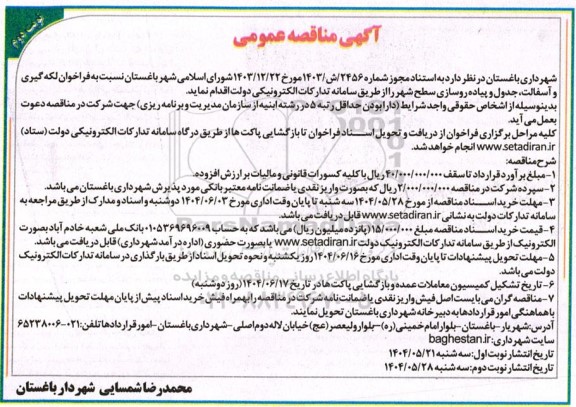 نوبت دوم
آگهی مناقصه عمومی
شهرداری باغستان در نظر دارد به استناد مجوز شماره ۲۴۵۶/ش/۱۴۰۳ مورخ ۱۴۰۳/۱۲/۲۲ شورای اسلامی شهر باغستان نسبت به فراخوان لکه گیری
و آسفالت، جدول و پیاده روسازی سطح شهر را از طریق سامانه تدارکات الکترونیکی دولت اقدام نماید.
بدینوسیله از اشخاص حقوقی واجد شرایط (دارا بودن حداقل رتبه ۵ در رشته ابنیه از سازمان مدیریت و برنامه ریزی) جهت شرکت در مناقصه دعوت
بعمل می آید.
کلیه مراحل برگزاری فراخوان از دریافت و تحویل اسناد فراخوان تا بازگشایی پاکت ها از طریق درگاه سامانه تدارکات الکترونیکی دولت (ستاد)
www.setadiran.ir انجام خواهد شد.
شرح مناقصه:
۱-مبلغ برآورد قرارداد تا سقف ۴۰/۰۰۰/۰۰۰/۰۰۰ ریال با کلیه کسورات قانونی و مالیات بر ارزش افزوده.
۲-سپرده شرکت در مناقصه ۲/۰۰۰/۰۰۰/۰۰۰ ریال که بصورت واریز نقدی یا ضمانت نامه معتبر بانکی مورد پذیرش شهرداری باغستان می باشد.
۳-مهلت خرید اسناد مناقصه از مورخ ۱۴۰۴/۰۵/۲۸ سه شنبه تا پایان وقت اداری مورخ ۱۴۰۴/۰۶/۰۳ دوشنبه و اسناد و مدارک از طریق مراجعه به
سامانه تدارکات دولت به نشانی www.setadiran.ir قابل دریافت می باشد.
۴-قیمت خرید اسناد مناقصه مبلغ ۱۵/۰۰۰/۰۰۰ (پانزده میلیون ریال) می باشد که به حساب ۰۱۰۵۳۶۹۶۹۶۰۰۹ بانک ملی شعبه خادم آباد بصورت
الکترونیک از طریق سامانه تدارکات الکترونیک دولت www.setadiran.ir یا بصورت حضوری (اداره درآمد شهرداری) قابل دریافت می باشد.
۵-مهلت تحویل پیشنهادات تا پایان وقت اداری مورخ ۱۴۰۴/۰۶/۱۶ روز یکشنبه و نحوه تحویل اسناد از طریق بارگذاری در سامانه تدارکات الکترونیک
دولت می باشد.
۶-تاریخ تشکیل کمیسیون معاملات عمده و بازگشایی پاکت ها در تاریخ ۱۴۰۴/۰۶/۱۷ (روز دوشنبه)
۷-مناقصه گران می بایست اصل فیش واریز نقدی یا ضمانت نامه شرکت در مناقصه را بهمراه فیش خرید اسناد پیش از پایان مهلت تحویل پیشنهادات
با هماهنگی امور قراردادها به دبیرخانه شهرداری باغستان تحویل نمایند.
آدرس: شهریار-باغستان-بلوار امام خمینی (ره)-بلوار ولیعصر (عج) خیابان لاله دوم اصلی-شهرداری باغستان-امور قراردادها تلفن: ۰۲۱-۶۵۲۳۸۰۰۶
سایت شهرداری: baghestan.ir
تاریخ انتشار نوبت اول: سه شنبه ۱۴۰۴/۰۵/۲۱
تاریخ انتشار نوبت دوم: سه شنبه ۱۴۰۴/۰۵/۲۸
محمدرضا شمسایی شهردار باغستان